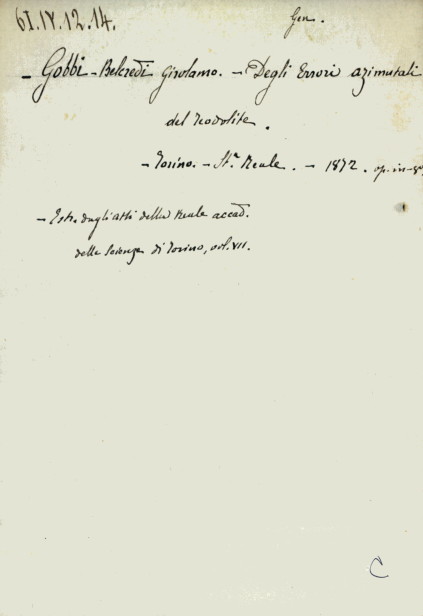 61.IV.12.14.
Gen.
- Gobbi - Belcredi Girolamo. - Degli Errori azimutali
del Teodolite.
- Torino. - St.ª Reale. - 1872. op. in-8º
- Estr. dagli atti della Reale accad.
delle Scienze di Torino, vol. VII.
C